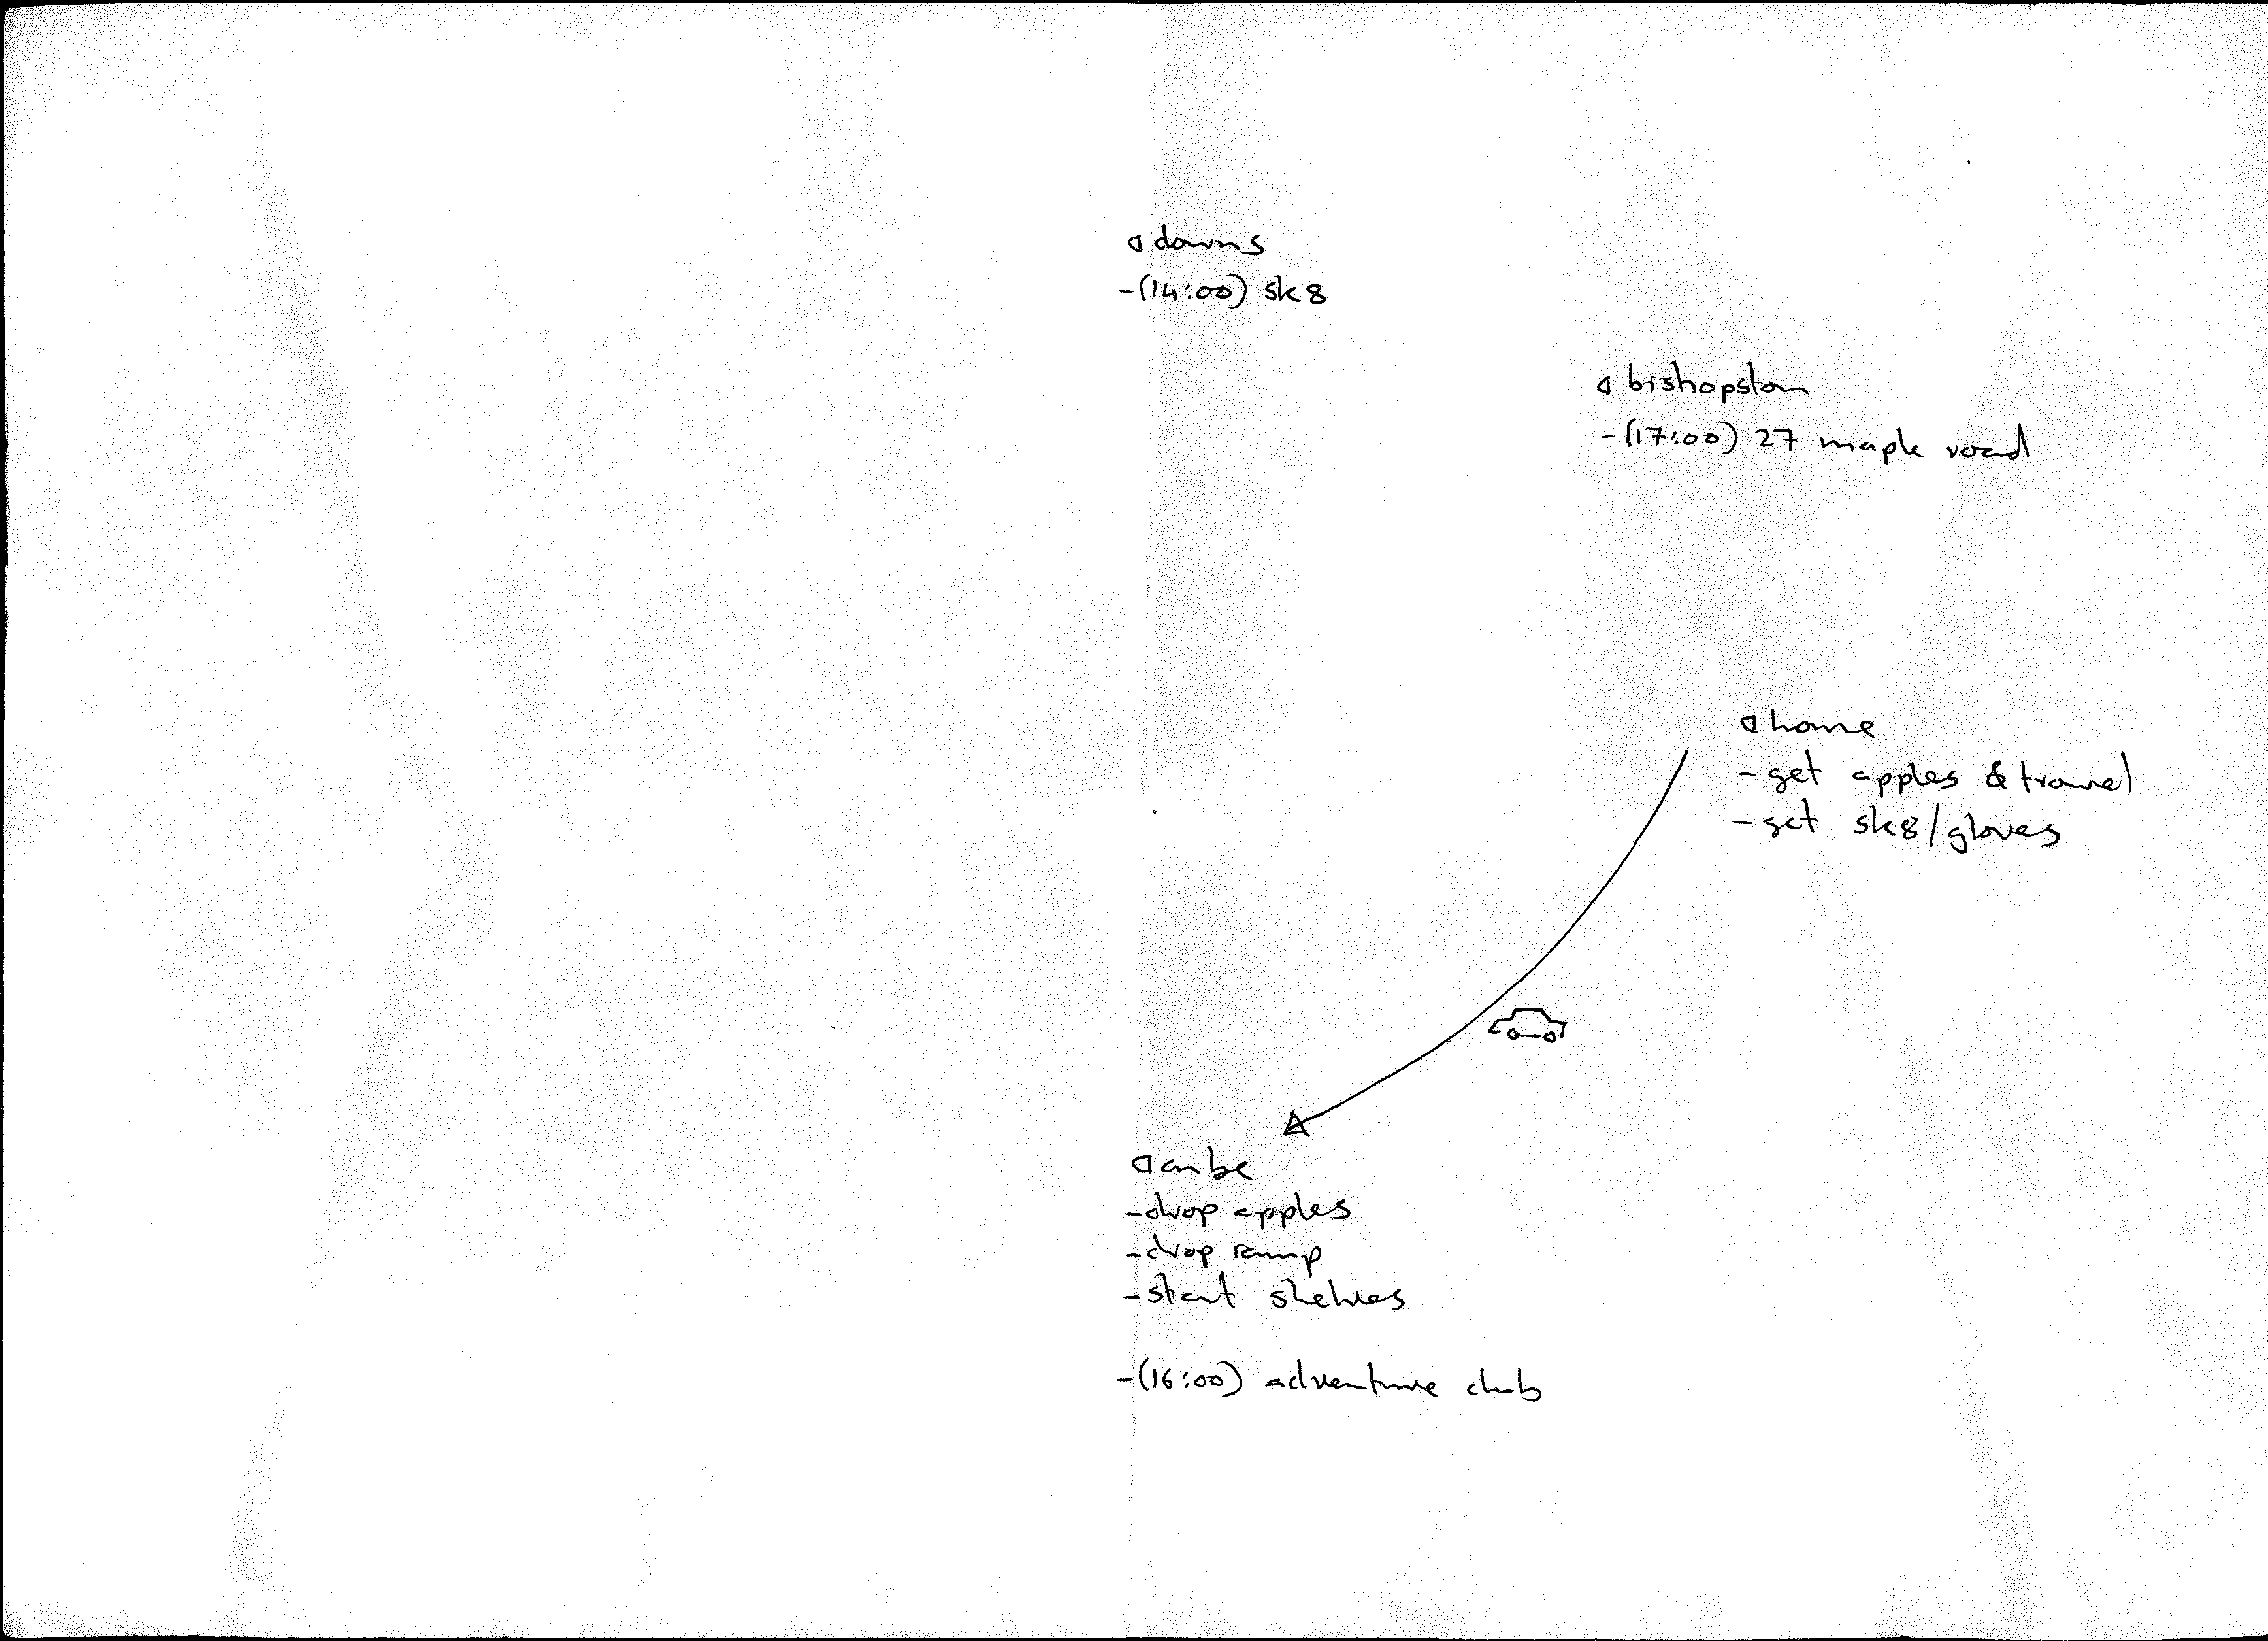 downs
-(14:00) sk8
bishopston
-(17:00) 27 maple road
home
-get apples & trowel
-get sk8/gloves
-drop apples
-drop ramp
-start shelves
-(16:00) adventure club